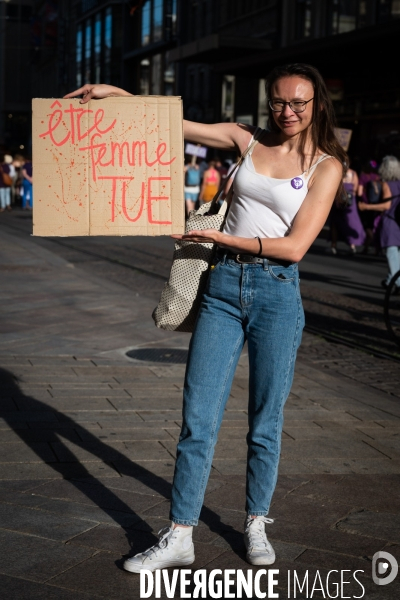 être
femme
TUE
DIVERGENCE IMAGES